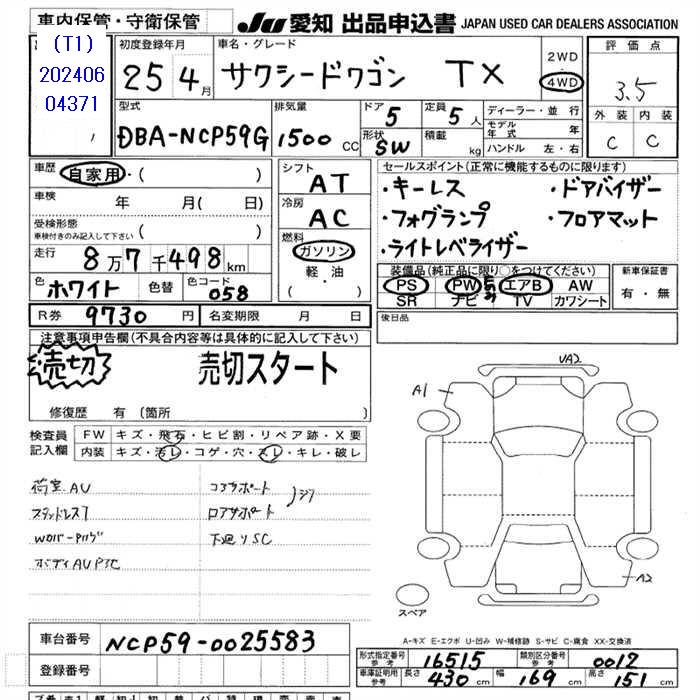 車内保管・守衛保管
JU 愛知 出品申込書 JAPAN USED CAR DEALERS ASSOCIATION
(T1)
202406
04371
初度登録年月
25 4月
車名・グレード
サクシードワゴン TX
2WD
4WD
評価点
3.5
外装 内装
C C
型式
DBA-NCP59G
排気量
1500 CC
ドア 5
形状 SW
定員 5人
積載 kg
ディーラー・並行
モデル年式 年
ハンドル 左・右
車歴 自家用・( )
車検 年 月( 日)
受検形態
車検付きのみ記入して下さい ( )
走行 8万7千498km
色 ホワイト 色替 色コード 058
シフト AT
冷房 AC
燃料
ガソリン
軽・油
( ・ )
セールスポイント(正常に機能するものに限ります)
・キーレス ・ドアバイザー
・フォグランプ ・フロアマット
・ライトレベライザー
装備品(純正品に限り○をつけてください)
PS PW エアB AW
SR ナビ TV カワシート
新車保証書
有・無
R券 9730円 名変期限 月 日
後日品
注意事項申告欄(不具合内容等は具体的に記入して下さい)
売切 売切スタート
修復歴 有 (箇所 )
検査員記入欄
FW キズ・飛石・ヒビ割・リペア跡・X要
内装 キズ・汚レ・コゲ・穴・スレ・キレ・破レ
荷室AU コアサポート
ロアサポート
下廻りSC
VA2
A1
A2
スペア
A-キズ E-エクボ U-凹み W-補修跡 S-サビ C-腐食 XX-交換済
車台番号 NCP59-0025583
登録番号
形式指定番号 参考 16515 類別区分番号 参考 0012
車庫証明用 参考 長さ 430cm 幅 169cm 高さ 151cm